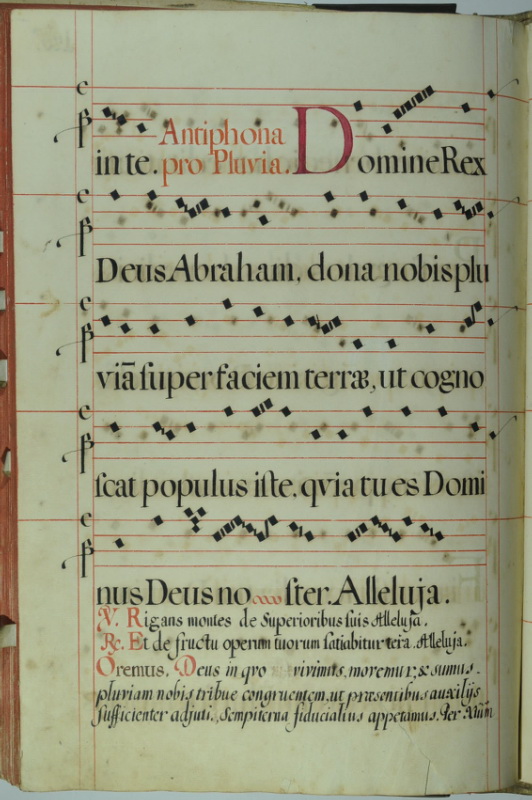 Antiphona
in te. pro Pluvia. Domine Rex
Deus Abraham, dona nobis plu
viã ſuper faciem terræ, ut cogno
ſcat populus iſte. qvia tu es Domi
nus Deus no ſter. Alleluja.
V. Rigans montes de Superioribus ſuis Alleluja.
Re. Et de fructu operum tuorum ſatiabitur tera. Alleluja.
Oremus. Deus in qvo vivimus, movemur, & sumus.
pluviam nobis tribue congruentem, ut præsentibus auxilijs
ſufficienter adjuti, Sempiterna fiducialius appetamus. Per